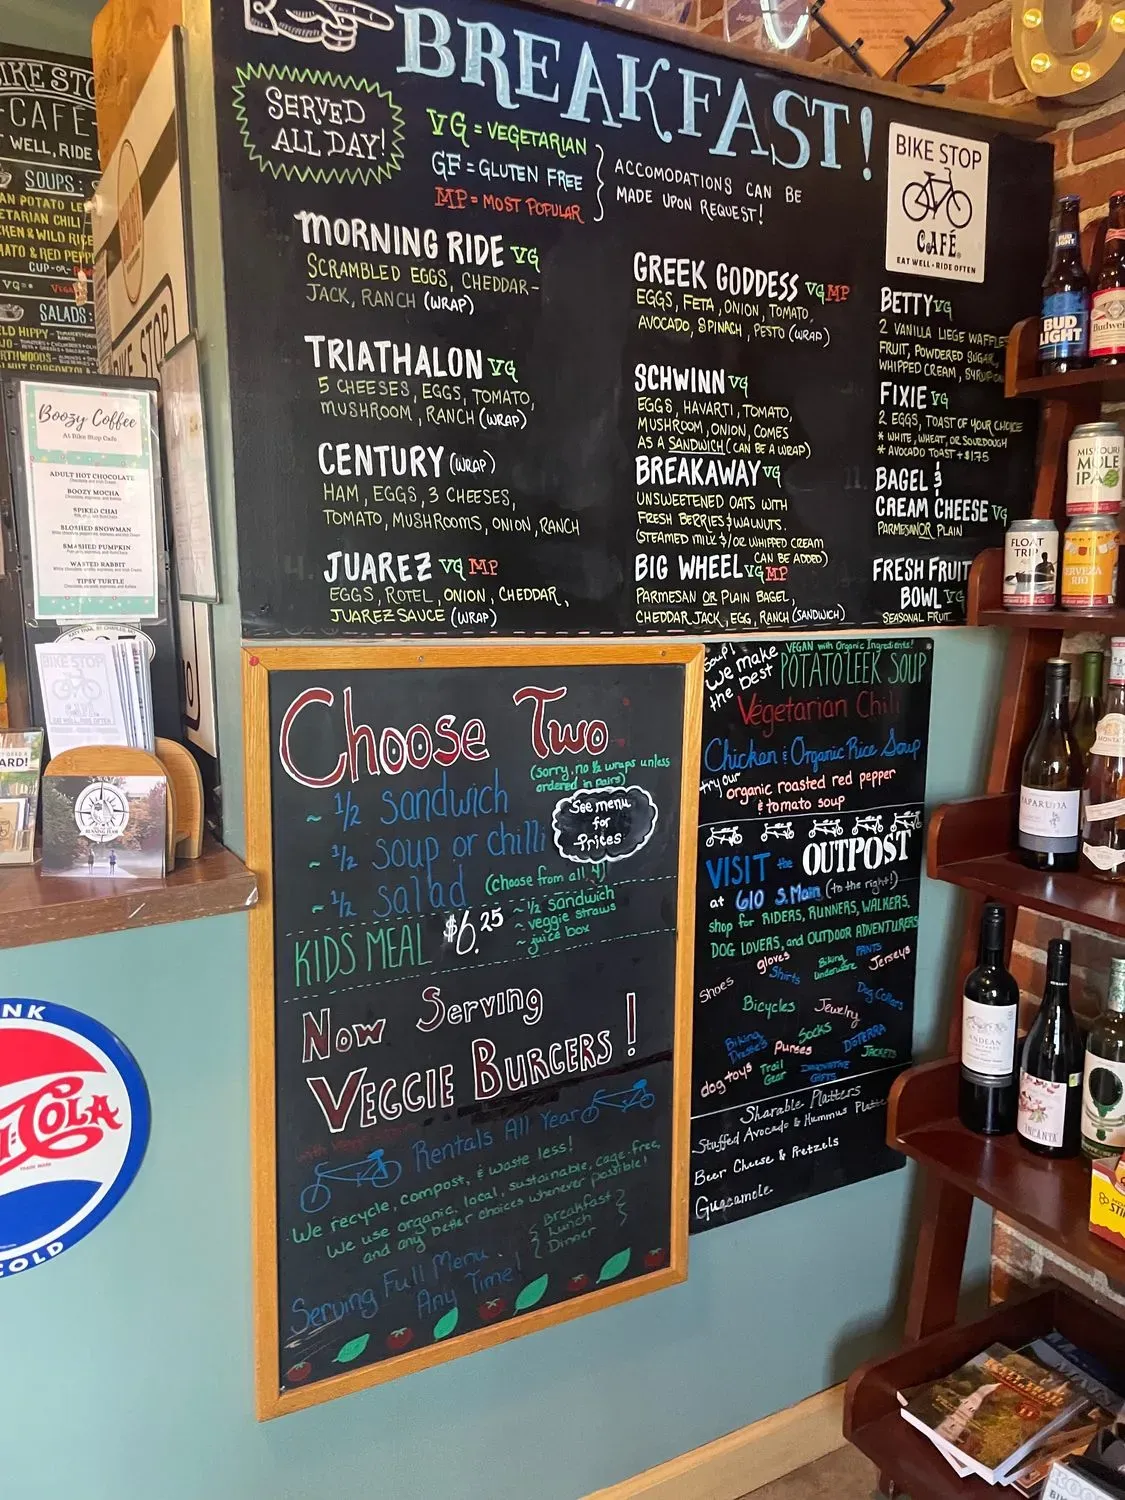 BREAKFAST!
SERVED
ALL DAY!
VG = VEGETARIAN
GF = GLUTEN FREE
MP = MOST POPULAR
ACCOMODATIONS CAN BE
MADE UPON REQUEST!
BIKE STOP
CAFÉ
EAT WELL - RIDE OFTEN
MORNING RIDE VG
SCRAMBLED EGGS, CHEDDAR-
JACK, RANCH (WRAP)
TRIATHALON VG
5 CHEESES, EGGS, TOMATO,
MUSHROOM, RANCH (WRAP)
CENTURY (WRAP)
HAM, EGGS, 3 CHEESES,
TOMATO, MUSHROOMS, ONION, RANCH
JUAREZ VG MP
EGGS, ROTEL, ONION, CHEDDAR,
JUAREZ SAUCE (WRAP)
GREEK GODDESS VG MP
EGGS, FETA, ONION, TOMATO,
AVOCADO, SPINACH, PESTO (WRAP)
SCHWINN VG
EGGS, HAVARTI, TOMATO,
MUSHROOM, ONION, COMES
AS A SANDWICH (CAN BE A WRAP)
BREAKAWAY VG
UNSWEETENED OATS WITH
FRESH BERRIES & WALNUTS
(STEAMED MILK &/OR WHIPPED CREAM
CAN BE ADDED)
BIG WHEEL VG MP
PARMESAN OR PLAIN BAGEL,
CHEDDAR JACK, EGG, RANCH (SANDWICH)
BETTY VG
2 VANILLA LIEGE WAFFLES
FRUIT, POWDERED SUGAR,
WHIPPED CREAM, SYRUP
FIXIE VG
2 EGGS, TOAST OF YOUR CHOICE
* WHITE, WHEAT, OR SOURDOUGH
* AVOCADO TOAST + $1.75
BAGEL &
CREAM CHEESE VG
PARMESAN OR PLAIN
FRESH FRUIT
BOWL VG
SEASONAL FRUIT
BIKE STO
CAFE
WELL, RIDE
SOUPS:
CUP-OR-
SALADS:
Boozy Coffee
At Bike Stop Cafe
ADULT HOT CHOCOLATE
BOOZY MOCHA
SPIKED CHAI
BLOSHED SNOWMAN
SMASHED PUMPKIN
WASTED RABBIT
TIPSY TURTLE
BIKE STOP
Choose Two
(sorry, no ½ wraps unless
ordered in pairs)
~ ½ sandwich
~ ½ soup or chilli
~ ½ salad (choose from all 4)
See menu
for
Prices
KIDS MEAL $6.25
~ ½ sandwich
~ veggie straws
~ juice box
Now Serving
VEGGIE BURGERS!
Rentals All Year
We recycle, compost, & waste less!
We use organic, local, sustainable, cage-free,
and any better choices whenever possible!
Serving Full Menu
Any Time!
Breakfast
Lunch
Dinner
Soup!
we make
the best
VEGAN with Organic Ingredients!
POTATO LEEK SOUP
Vegetarian Chili
Chicken & Organic Rice Soup
try our
organic roasted red pepper
& tomato soup
VISIT the OUTPOST
at 610 S. Main (to the right!)
shop for RIDERS, RUNNERS, WALKERS,
DOG LOVERS, and OUTDOOR ADVENTURERS
Shoes
gloves
Shirts
Biking
Underware
PANTS
Jerseys
Dog Collars
Bicycles
Jewelry
Socks
Purses
DoTERRA
JACKETS
dog toys
Trail
Gear
GIFTS
Sharable Platters
Stuffed Avocado & Hummus Platter
Beer Cheese & Pretzels
Guacamole
COLA
COLD
BUD
LIGHT
Budweis
MISSOURI
MULE
IPA
FLOAT
TRIP
CERVEZA
RIO
MAPARUNA
ANDEAN
INCANTA